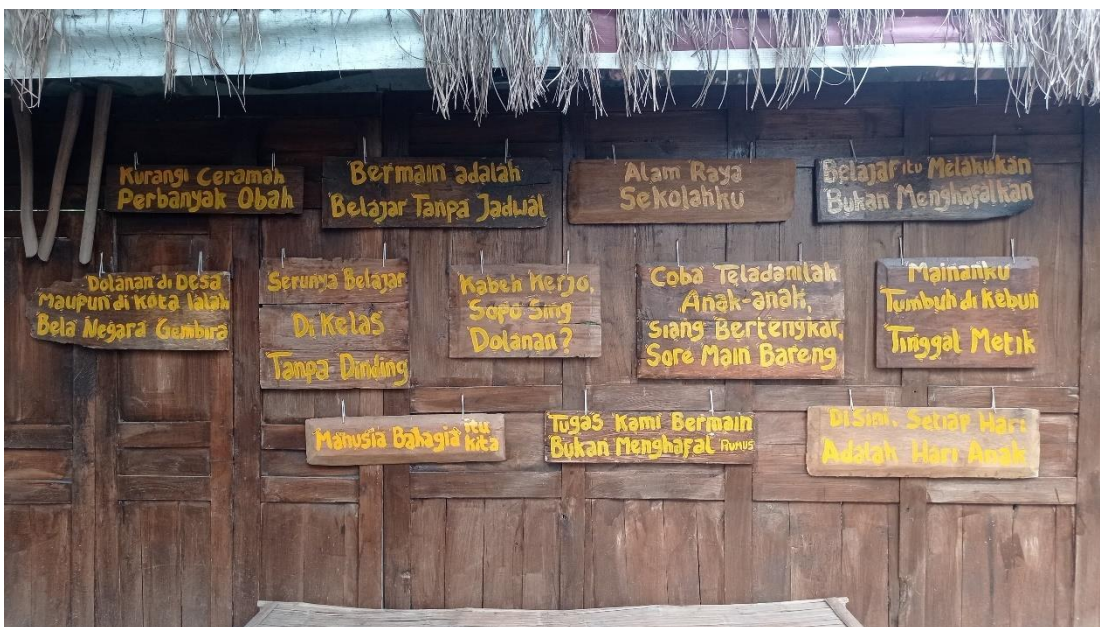 Kurangi Ceramah
Perbanyak Obah
Bermain adalah
Belajar Tanpa Jadwal
Alam Raya
Sekolahku
Belajar itu Melakukan
Bukan Menghafalkan
Dolanan di Desa
Maupun di Kota Ialah
Bela Negara Gembira
Serunya Belajar
Di Kelas
Tanpa Dinding
Kabeh Kerjo,
Sopo Sing
Dolanan?
Coba Teladanilah
Anak-anak,
Siang Bertengkar,
Sore Main Bareng
Mainanku
Tumbuh di Kebun
Tinggal Metik
Manusia Bahagia itu
kita
Tugas Kami Bermain
Bukan Menghafal Rumus
Di Sini, Setiap Hari
Adalah Hari Anak